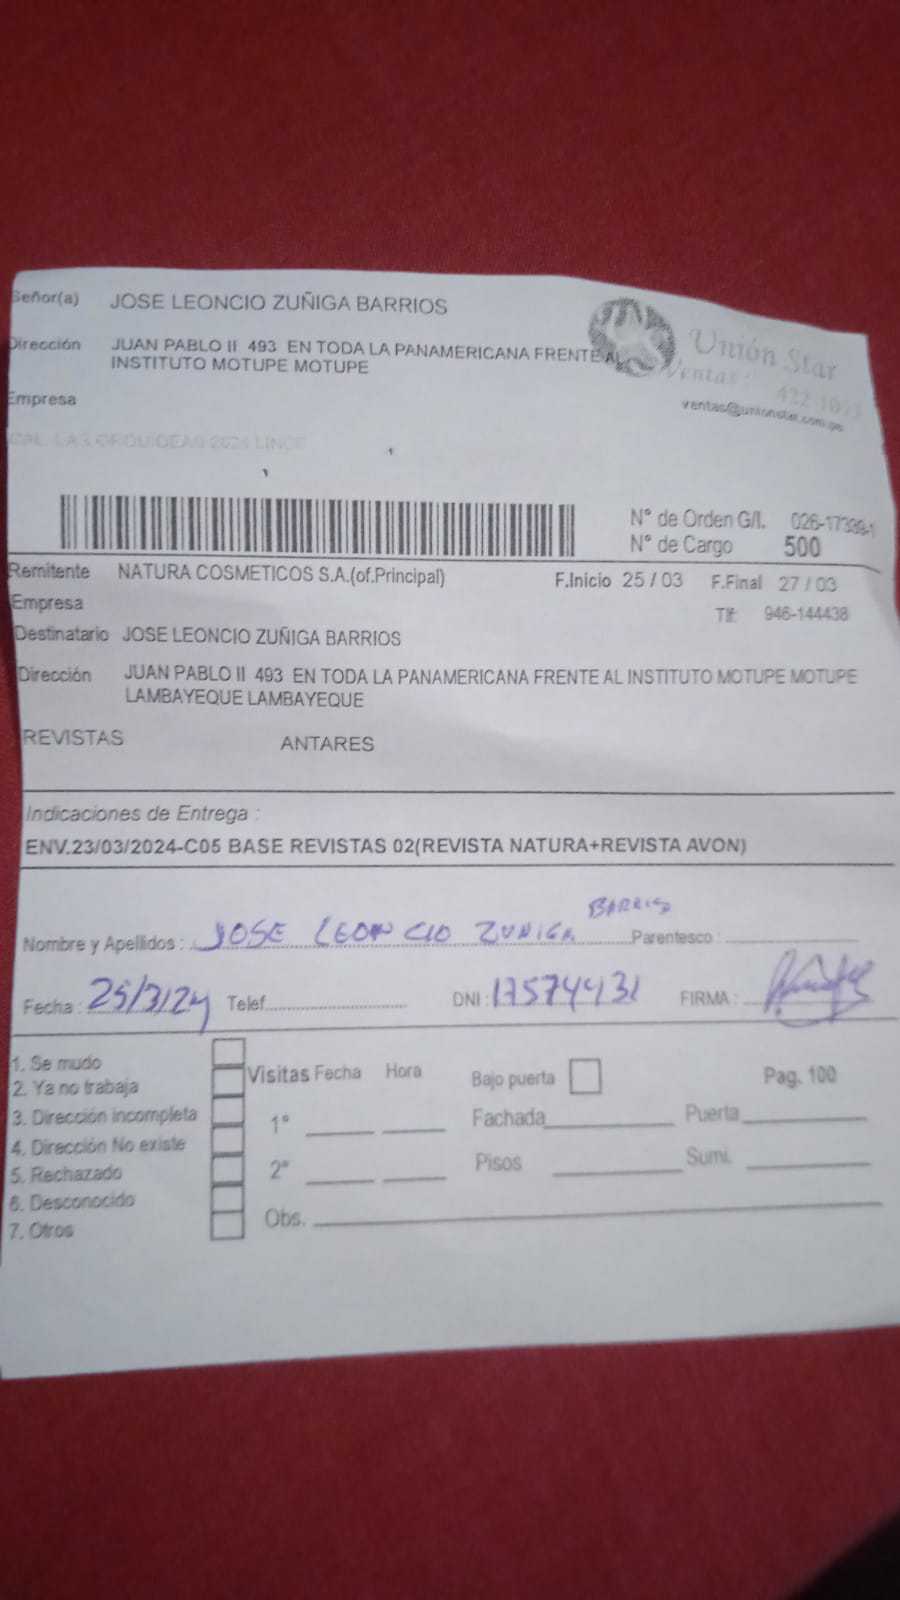 Señor(a) JOSE LEONCIO ZUÑIGA BARRIOS
Dirección JUAN PABLO II 493 EN TODA LA PANAMERICANA FRENTE AL
INSTITUTO MOTUPE MOTUPE
Unión Star
Ventas:
422-1053
ventas@unionstar.com.pe
Empresa
CAL. LAS ORQUIDEAS 2624 LINCE
N° de Orden G/I. 026-17399-1
N° de Cargo 500
Remitente NATURA COSMETICOS S.A.(of.Principal) F.Inicio 25 / 03 F.Final 27 / 03
Empresa Tlf: 946-144438
Destinatario JOSE LEONCIO ZUÑIGA BARRIOS
Dirección JUAN PABLO II 493 EN TODA LA PANAMERICANA FRENTE AL INSTITUTO MOTUPE MOTUPE
LAMBAYEQUE LAMBAYEQUE
REVISTAS ANTARES
Indicaciones de Entrega :
ENV.23/03/2024-C05 BASE REVISTAS 02(REVISTA NATURA+REVISTA AVON)
BARRIOS
Nombre y Apellidos : JOSE LEONCIO ZUNIGA Parentesco :
Fecha : 25/3/24 Telef. DNI : 17574431 FIRMA :
1. Se mudo
2. Ya no trabaja
3. Dirección incompleta
4. Dirección No existe
5. Rechazado
6. Desconocido
7. Otros
Visitas Fecha Hora Bajo puerta Pag. 100
1° Fachada Puerta
2° Pisos Sumi.
Obs.